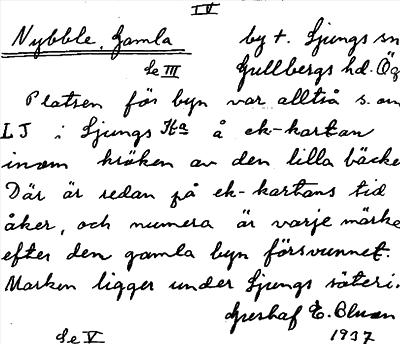 IV
Nybble, Gamla by t. Ljungs sn
Se III Gullbergs hd. Ög
Platsen för byn var alltså s. om
LJ i Ljungs Ka å ek-kartan
inom kröken av den lilla bäcke
Där är redan på ek-kartans tid
åker, och numera är varje märke
efter den gamla byn försvunnet.
Marken ligger under Ljungs säteri.
Gustaf E. Bluun
Se V 1937